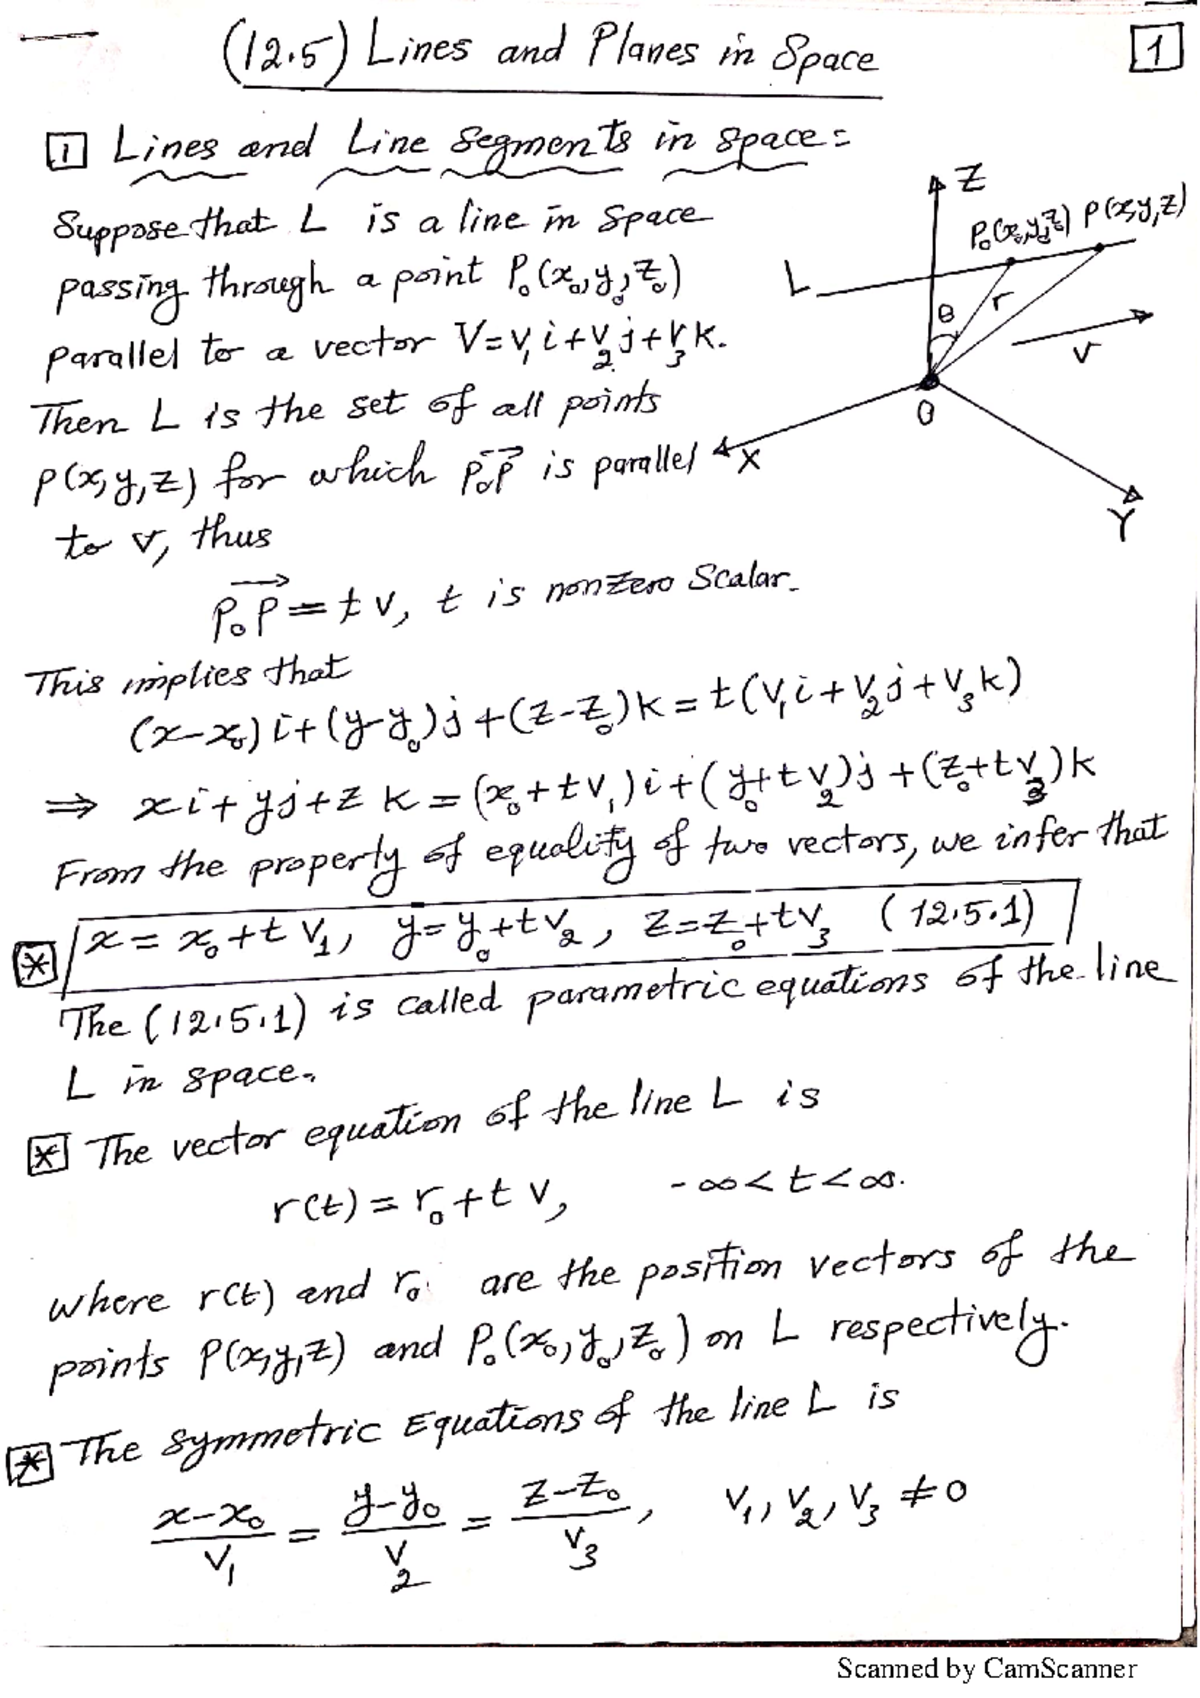 (12.5) Lines and Planes in Space
1
i Lines and Line Segments in space:
Suppose that L is a line in space
passing through a point P₀(x₀,y₀,z₀)
parallel to a vector V=v₁i+v₂j+v₃k.
Then L is the set of all points
P(x,y,z) for which P₀P is parallel
to v, thus
Z
P₀(x₀,y₀,z₀) P(x,y,z)
L
θ
r
v
0
X
Y
P₀P = t v, t is nonzero scalar.
This implies that
(x-x₀)i+(y-y₀)j+(z-z₀)k = t(v₁i+v₂j+v₃k)
⇒ xi+yj+zk = (x₀+tv₁)i+(y₀+tv₂)j+(z₀+tv₃)k
From the property of equality of two vectors, we infer that
* x = x₀+t v₁, y=y₀+tv₂, z=z₀+tv₃ (12.5.1)
The (12.5.1) is called parametric equations of the line
L in space.
* The vector equation of the line L is
r(t) = r₀+t v, -∞<t<∞.
where r(t) and r₀ are the position vectors of the
points P(x,y,z) and P₀(x₀,y₀,z₀) on L respectively.
* The Symmetric Equations of the line L is
x-x₀/v₁ = y-y₀/v₂ = z-z₀/v₃, v₁, v₂, v₃ ≠ 0
Scanned by CamScanner